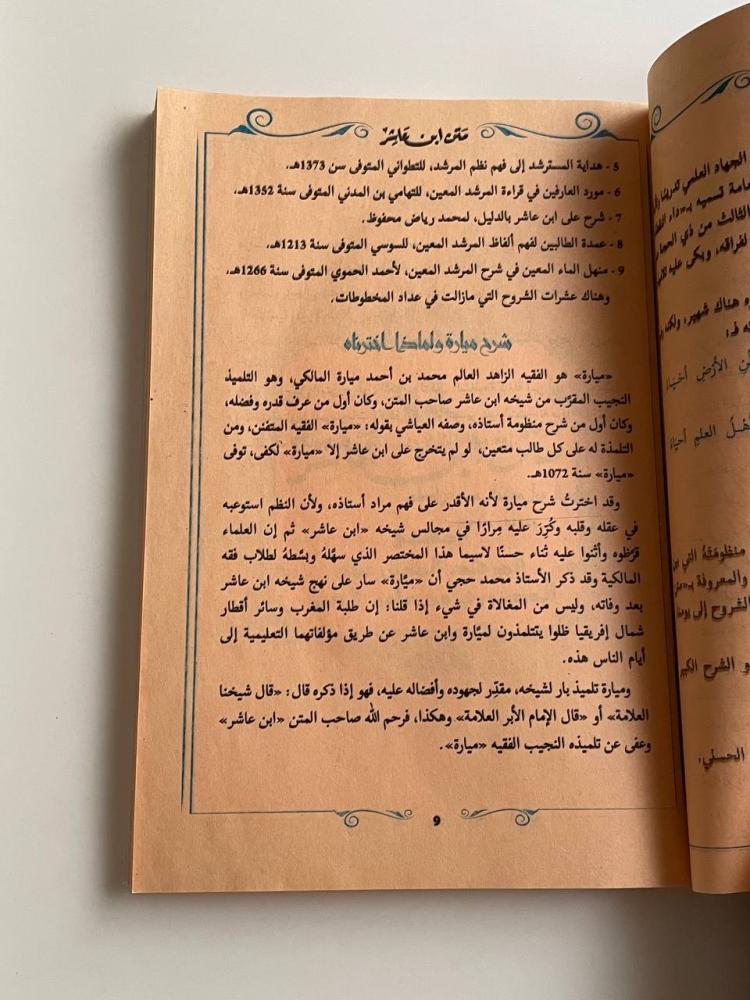 متن ابن عاشر
5 - هداية المسترشد إلى فهم نظم المرشد، للتطواني المتوفى سن 1373هـ.
6 - مورد العارفين في قراءة المرشد المعين، للتهامي بن المدني المتوفى سنة 1352هـ.
7 - شرح على ابن عاشر بالدليل، لمحمد رياض محفوظ.
8 - عمدة الطالبين لفهم ألفاظ المرشد المعين، للسوسي المتوفى سنة 1213هـ.
9 - منهل الماء المعين في شرح المرشد المعين، لأحمد الحموي المتوفى سنة 1266هـ.
وهناك عشرات الشروح التي مازالت في عداد المخطوطات.
شرح ميارة ولماذا اخترناه
«ميارة» هو الفقيه الزاهد العالم محمد بن أحمد ميارة المالكي، وهو التلميذ
النجيب المقرّب من شيخه ابن عاشر صاحب المتن، وكان أول من عرف قدره وفضله،
وكان أول من شرح منظومة أستاذه، وصفه العياشي بقوله: «ميارة» الفقيه المتفنن، ومن
التلمذة له على كل طالب متعين، لو لم يتخرج على ابن عاشر إلا «ميارة» لكفى، توفى
«ميارة» سنة 1072هـ.
وقد اخترتُ شرح ميارة لأنه الأقدر على فهم مراد أستاذه، ولأن النظم استوعبه
في عقله وقلبه وكُرِّرَ عليه مِرارًا في مجالس شيخه «ابن عاشر» ثم إن العلماء
قرَّظوه وأثنوا عليه ثناء حسنًا لاسيما هذا المختصر الذي سهَّلهُ وبسَّطهُ لطلاب فقه
المالكية وقد ذكر الأستاذ محمد حجي أن «ميَّارة» سار على نهج شيخه ابن عاشر
بعد وفاته، وليس من المغالاة في شيء إذا قلنا: إن طلبة المغرب وسائر أقطار
شمال إفريقيا ظلوا يتتلمذون لميَّارة وابن عاشر عن طريق مؤلفاتهما التعليمية إلى
أيام الناس هذه.
وميارة تلميذ بار لشيخه، مقدِّر لجهوده وأفضاله عليه، فهو إذا ذكره قال: «قال شيخنا
العلامة» أو «قال الإمام الأبر العلامة» وهكذا، فرحم الله صاحب المتن «ابن عاشر»
وعفى عن تلميذه النجيب الفقيه «ميارة».
9
الجهاد العلمي
الثالث من ذي
لفراقه، وبكى عليه
هناك شهير، ولكنه
الأرضِ أحياء
العلمِ أحياء
منظومتهُ التي
والمعروفة بـ
الشروح إلى
الشرح الكبير
الحسني،